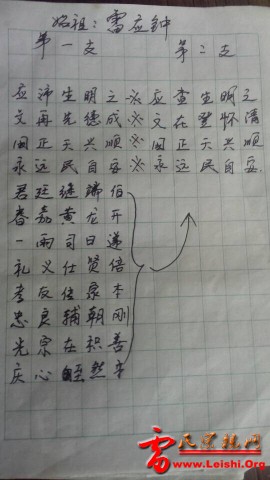 始祖：雷应钟
第一支 第二支
应沛生明之※应查生明之
文再先德成※文在登怀清
国正天兴顺※国正天兴顺
永远民自安※永远民自安
君廷继端伯
春嘉黄龙开
一两司日蓬
礼义仕贤倍
孝友传家本
忠良辅朝刚
光宗在积善
庆心自然辛
雷氏宗亲网
www.Leishi.Org